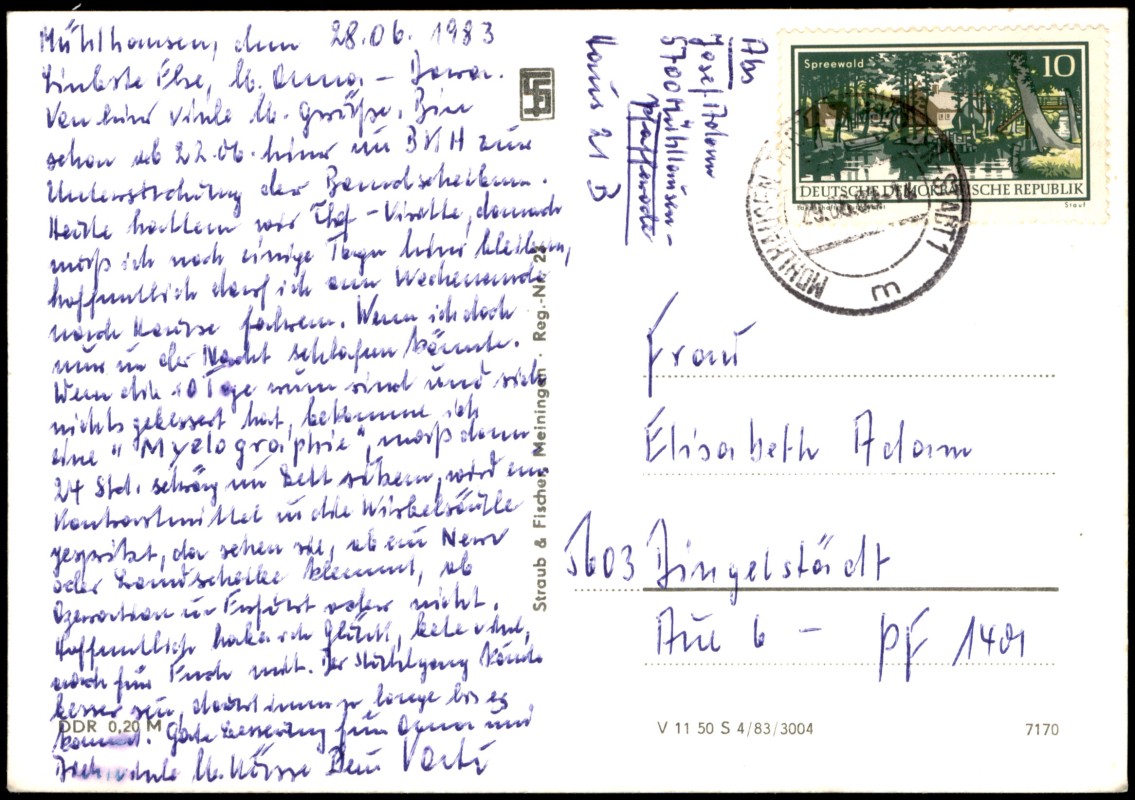 Mühlhausen, den 28.06.1983
Liebste Else, lb. Oma –
Von hier viele lb. Grüße. Bin
schon seit 22.06. hier im BKH zur
Untersuchung der Bandscheiben.
Heute hatten wir Chef-Visite, danach
muß ich noch einige Tage hier bleiben,
hoffentlich darf ich am Wochenende
nach Hause fahren. Wenn ich doch
nur in der Nacht schlafen könnte.
Wenn die 10 Tage rum sind und sich
nichts gebessert hat, bekomme ich
eine "Myelographie", muß dann
24 Std. schräg im Bett sitzen, wird ein
Kontrastmittel in die Wirbelsäule
gespritzt, da sehen sie, ob ein Nerv
oder Bandscheibe klemmt, ob
Operation in Erfurt oder nicht.
Hoffentlich habe ich Glück, bete viel,
auch für Euch mit. Der Stuhlgang könnte
besser sein, dauert immer so lange bis es
kommt. Gute Besserung für Oma und
Dich viele lb. Küsse Dein Vati
DDR 0,20 M
Straub & Fischer Meiningen · Reg.-Nr. 23
Abs
Josef Adam
5700 Mühlhausen-
Pfafferode
Haus 21 B
Spreewald
10
DEUTSCHE DEMOKRATISCHE REPUBLIK
Stauf
MÜHLHAUSEN
STADT 1
m
Frau
Elisabeth Adam
5603 Dingelstädt
Aue 6 – PF 1401
V 11 50 S 4/83/3004
7170